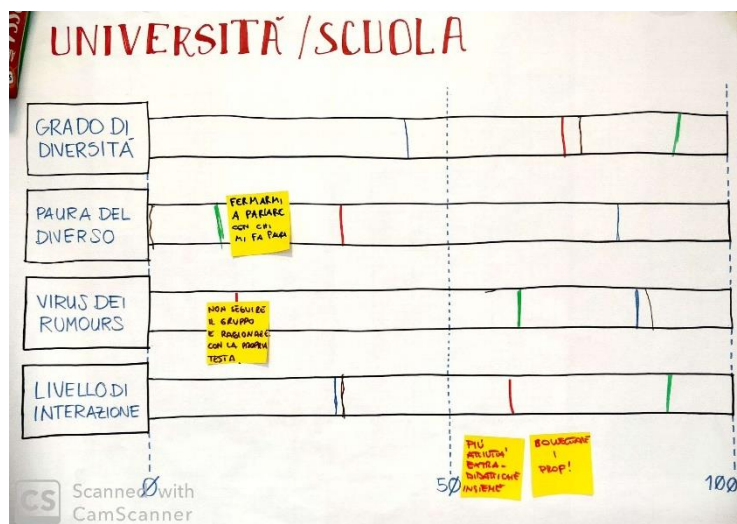 UNIVERSITÀ / SCUOLA
GRADO DI
DIVERSITÀ
PAURA DEL
DIVERSO
FERMARMI
A PARLARE
CON CHI
MI FA PAURA
VIRUS DEI
RUMOURS
NON SEGUIRE
IL GRUPPO
E RAGIONARE
CON LA PROPRIA
TESTA
LIVELLO DI
INTERAZIONE
PIÙ
ATTIVITÀ
EXTRA-
DIDATTICHE
INSIEME
I
PROF!
0
50
100
CS Scanned with
CamScanner